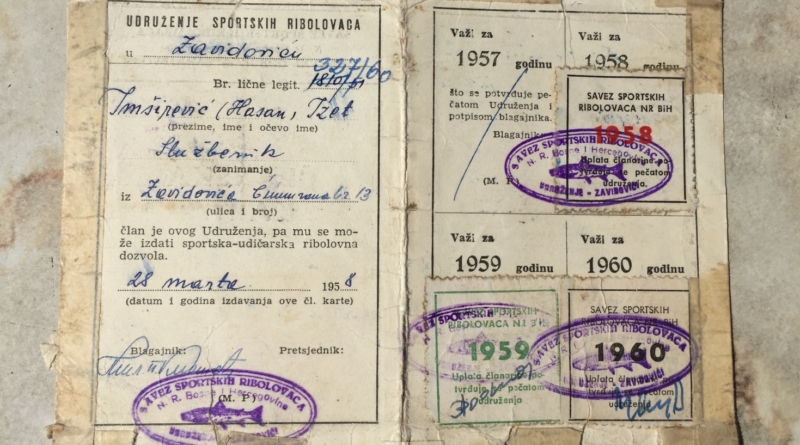 UDRUŽENJE SPORTSKIH RIBOLOVACA
u Zavidovići
327/60
Br. lične legit.
Imširević (Hasan) Izet
(prezime, ime i očevo ime)
Službenik
(zanimanje)
iz Zavidovića 13
(ulica i broj)
član je ovog Udruženja, pa mu se mo-
že izdati sportska-udičarska ribolovna
dozvola.
28 marta 1958
(datum i godina izdavanja ove čl. karte)
Blagajnik: Pretsjednik:
(M. P.)
SAVEZ SPORTSKIH RIBOLOVACA
N. R. Bosne i Hercegovine
UDRUŽENJE
Važi za
1957 godinu
što se potvrđuje pe-
čatom Udruženja i
potpisom blagajnika.
Blagajnik:
(M. P.)
Važi za
1958 godinu
SAVEZ SPORTSKIH
RIBOLOVACA NR BiH
1958
Uplata članarine po-
tvrđuje se pečatom
udruženja.
SAVEZ SPORTSKIH RIBOLOVACA
N. R. Bosne i Hercegovine
UDRUŽENJE - ZAVIDOVIĆI
Važi za
1959 godinu
SAVEZ SPORTSKIH
RIBOLOVACA NR BiH
1959
Uplata članarine po-
tvrđuje se pečatom
udruženja
Važi za
1960 godinu
SAVEZ SPORTSKIH
RIBOLOVACA NR BiH
1960
Uplata članarine po-
tvrđuje se pečatom
udruženja
SAVEZ SPORTSKIH RIBOLOVACA
UDRUŽENJE - ZAVIDOVIĆI